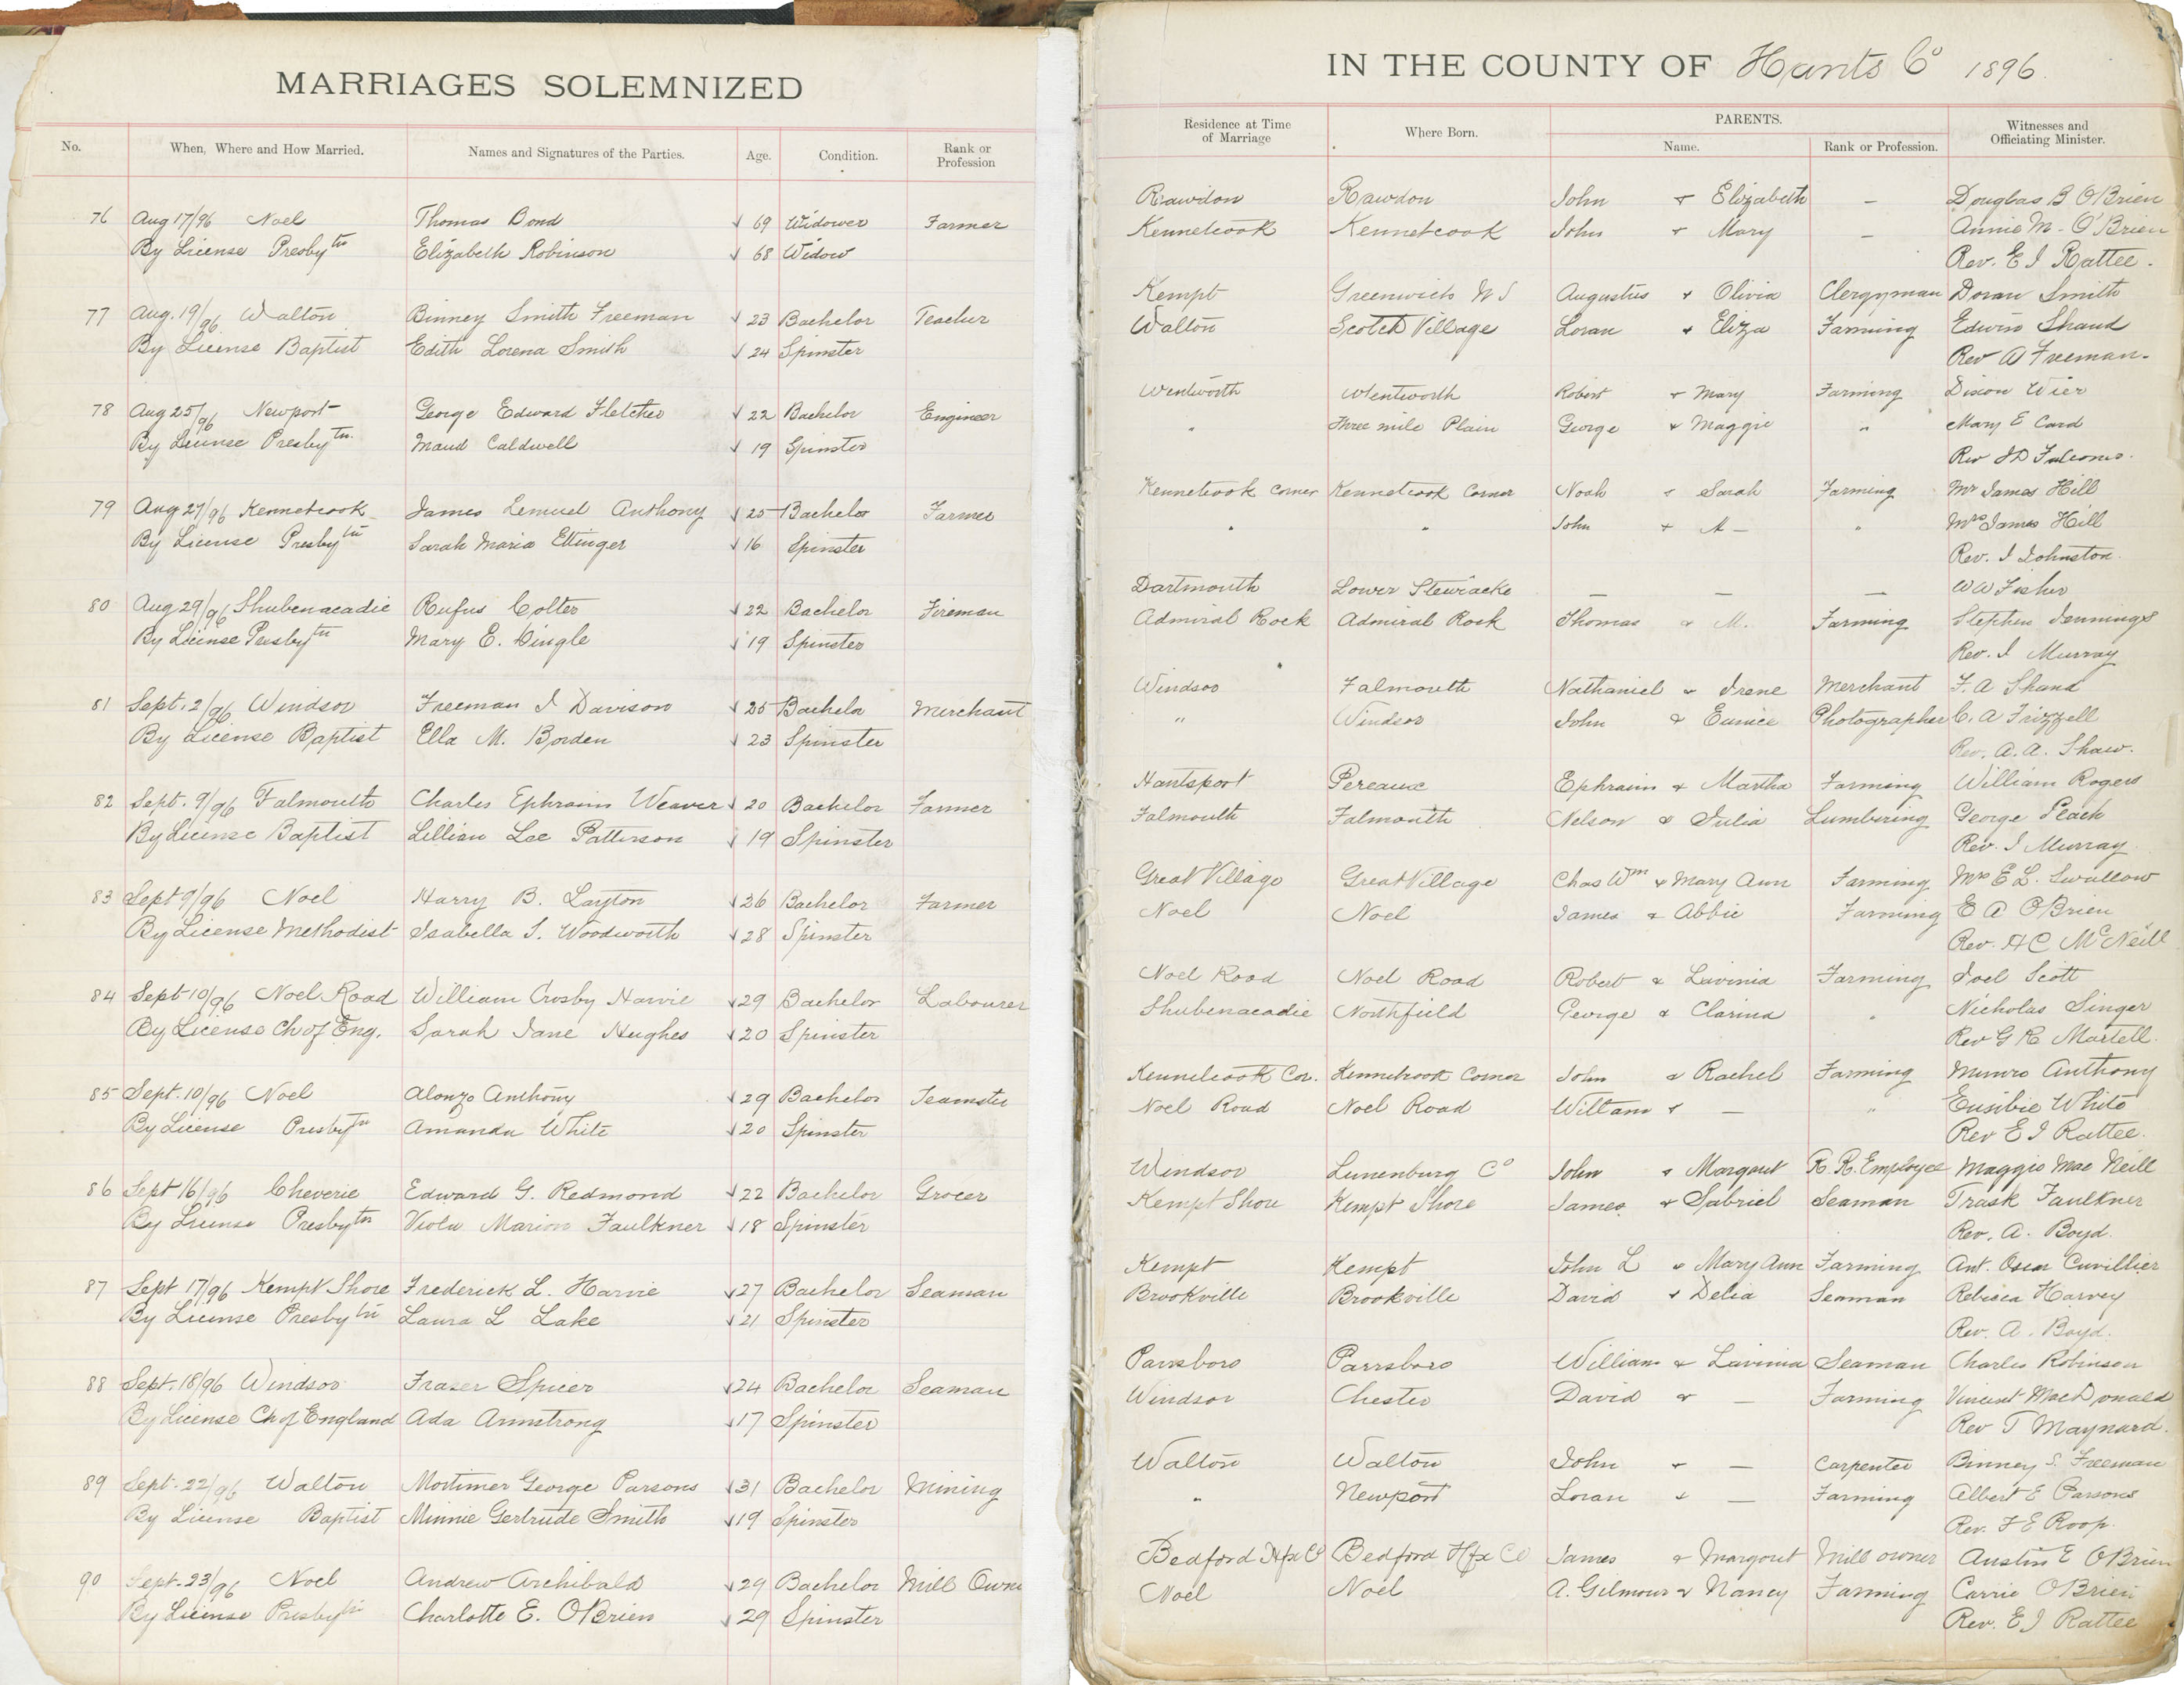 MARRIAGES SOLEMNIZED
No. When, Where and How Married. Names and Signatures of the Parties. Age. Condition. Rank or Profession
76 Aug 17/96 Noel Thomas Bond 69 Widower Farmer
By License Presbytn Elizabeth Robinson 68 Widow
77 Aug. 19/96 Walton Binney Smith Freeman 23 Bachelor Teacher
By License Baptist Edith Lorena Smith 24 Spinster
78 Aug 25/96 Newport George Edward Fletcher 22 Bachelor Engineer
By License Presbytn. Maud Caldwell 19 Spinster
79 Aug 27/96 Kennetcook James Lemuel Anthony 25 Bachelor Farmer
By License Presbytn Sarah Maria Ettinger 16 Spinster
80 Aug 29/96 Shubenacadie Rufus Colter 22 Bachelor Fireman
By License Presbytn Mary E. Dingle 19 Spinster
81 Sept. 2/96 Windsor Freeman J Davison 25 Bachelor Merchant
By License Baptist Ella M. Borden 23 Spinster
82 Sept. 9/96 Falmouth Charles Ephraim Weaver 20 Bachelor Farmer
By License Baptist Lillian Lee Patterson 19 Spinster
83 Sept 9/96 Noel Harry B. Layton 26 Bachelor Farmer
By License Methodist Isabella S. Woodworth 28 Spinster
84 Sept 10/96 Noel Road William Crosby Harvie 29 Bachelor Labourer
By License Ch of Eng. Sarah Jane Hughes 20 Spinster
85 Sept. 10/96 Noel Alonzo Anthony 29 Bachelor Teamster
By License Presbytn Amanda White 20 Spinster
86 Sept 16/96 Cheverie Edward G. Redmond 22 Bachelor Grocer
By License Presbytn Viola Marion Faulkner 18 Spinster
87 Sept 17/96 Kempt Shore Frederick L. Harvie 27 Bachelor Seaman
By License Presbytn Laura L Lake 21 Spinster
88 Sept. 18/96 Windsor Frazer Spicer 24 Bachelor Seaman
By License Ch of England Ada Armstrong 17 Spinster
89 Sept. 22/96 Walton Mortimer George Parsons 31 Bachelor Mining
By License Baptist Minnie Gertrude Smith 19 Spinster
90 Sept. 23/96 Noel Andrew Archibald 29 Bachelor Mill Owner
By License Presbytn Charlotte E. OBrien 29 Spinster
IN THE COUNTY OF Hants Co 1896
Residence at Time of Marriage Where Born. PARENTS. Name. Rank or Profession. Witnesses and Officiating Minister.
Rawdon Rawdon John & Elizabeth — Douglas B OBrien
Kennetcook Kennetcook John & Mary — Annie M. O'Brien
Rev. E J Rattee.
Kempt Greenwich N S Augustus & Olivia Clergyman Doran Smith
Walton Scotch Village Loran & Eliza Farming Edwin Shaud
Rev A Freeman.
Wentworth Wentworth Robert & Mary Farming Dixon Wier
" Three mile Plain George & Maggie " Mary E Card
Rev J D
Kennetcook Corner Kennetcook Corner Noah & Sarah Farming Mr James Hill
" " John & A — " Mrs James Hill
Rev. J Johnston.
Dartmouth Lower Stewiacke — — — W W Fisher
Admiral Rock Admiral Rock Thomas & M. Farming Stephen Jennings
Rev. J Murray
Windsor Falmouth Nathaniel & Irene Merchant F. A Shand
" Windsor John & Eunice Photographer C. A Frizzell
Rev. A. A. Shaw.
Hantsport Pereaux Ephraim & Martha Farming William Rogers
Falmouth Falmouth Nelson & Julia Lumbering George Peach
Rev. J Murray
Great Village Great Village Chas Wm & Mary Ann Farming Mrs E L. Swallow
Noel Noel James & Abbie Farming E A OBrien
Rev. H C McNeill
Noel Road Noel Road Robert & Lavinia Farming Joel Scott
Shubenacadie Northfield George & Clarina " Nicholas Singer
Rev G R Martell.
Kennetcook Cor. Kennetcook Corner John & Rachel Farming Munro Anthony
Noel Road Noel Road William & — " Eusibie White
Rev E J Rattee.
Windsor Lunenburg Co John & Margaret R. R. Employee Maggie Mac Neill
Kempt Shore Kempt Shore James & Gabriel Seaman Trask Faulkner
Rev. A. Boyd.
Kempt Kempt John L & Mary Ann Farming Ant. Oscar Cuvillier
Brookville Brookville David & Delia Seaman Rebecca Harvey
Rev. A. Boyd.
Parrsboro Parrsboro William & Lavinia Seaman Charles Robinson
Windsor Chester David & — Farming Vincent MacDonald
Rev T Maynard.
Walton Walton John & — Carpenter Binney S. Freeman
" Newport Loran & — Farming Albert E Parsons
Rev. F E Roop.
Bedford Hfx Co Bedford Hfx Co James & Margaret Mill owner Austin E OBrien
Noel Noel A. Gilmour & Nancy Farming Carrie OBrien
Rev. E J Rattee